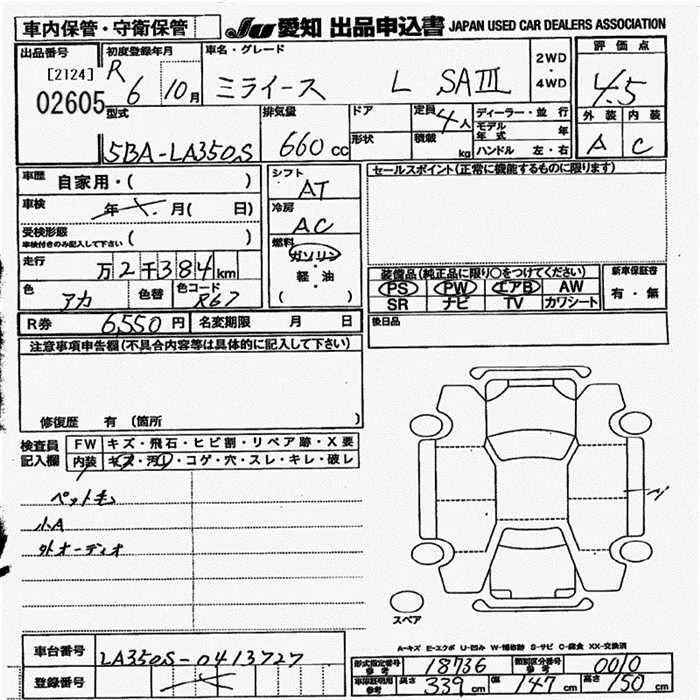 車内保管・守衛保管
JU 愛知 出品申込書 JAPAN USED CAR DEALERS ASSOCIATION
出品番号
[2124]
02605
初度登録年月
R 6 10月
車名・グレード
ミライース L SAⅢ
2WD
・
4WD
評価点
4.5
外装 内装
A C
型式
5BA-LA350S
排気量
660 cc
ドア
形状
定員 4人
積載 kg
ディーラー・並行
モデル年式 年
ハンドル 左・右
車歴 自家用・( )
車検 年 月( 日)
受検形態
車検付きのみ記入して下さい ( )
走行
万2千384km
色 アカ 色替 色コード R67
シフト
AT
冷房
AC
燃料
ガソリン
・
軽・油
( )
セールスポイント(正常に機能するものに限ります)
装備品(純正品に限り○をつけてください)
PS PW エアB AW
SR ナビ TV カワシート
新車保証書
有・無
R券 6,550円 名変期限 月 日
後日品
注意事項申告欄(不具合内容等は具体的に記入して下さい)
修復歴 有 (箇所 )
検査員
記入欄
FW キズ・飛石・ヒビ割・リペア跡・X要
内装 キズ・汚・コゲ・穴・スレ・キレ・破レ
ペット毛
小A
外オーディオ
スペア
A-キズ E-エクボ U-凹み W-補修跡 S-サビ C-腐食 XX-交換済
車台番号 LA350S-0413727
登録番号
形式指定番号 参考 18736 類別区分番号 参考 0010
車庫証明用 参考 長さ 339cm 幅 147cm 高さ 150cm